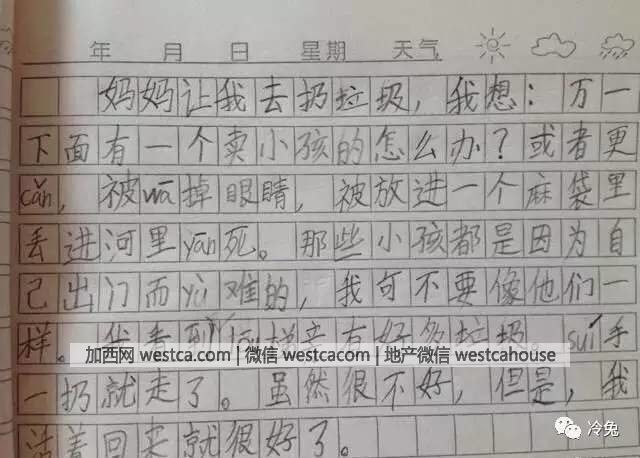 年 月 日 星期 天气
妈妈让我去扔垃圾，我想：万一
下面有一个卖小孩的怎么办？或者更
cǎn，被wā掉眼睛，被放进一个麻袋里
丢进河里yān死。那些小孩都是因为自
己出门而yù难的，我可不要像他们一
样。我看到lóu梯旁有好多垃圾。suí手
加西网 westca.com | 微信 westcacom | 地产微信 westcahouse
一扔就走了。虽然很不好，但是，我
活着回来就很好了。
冷兔